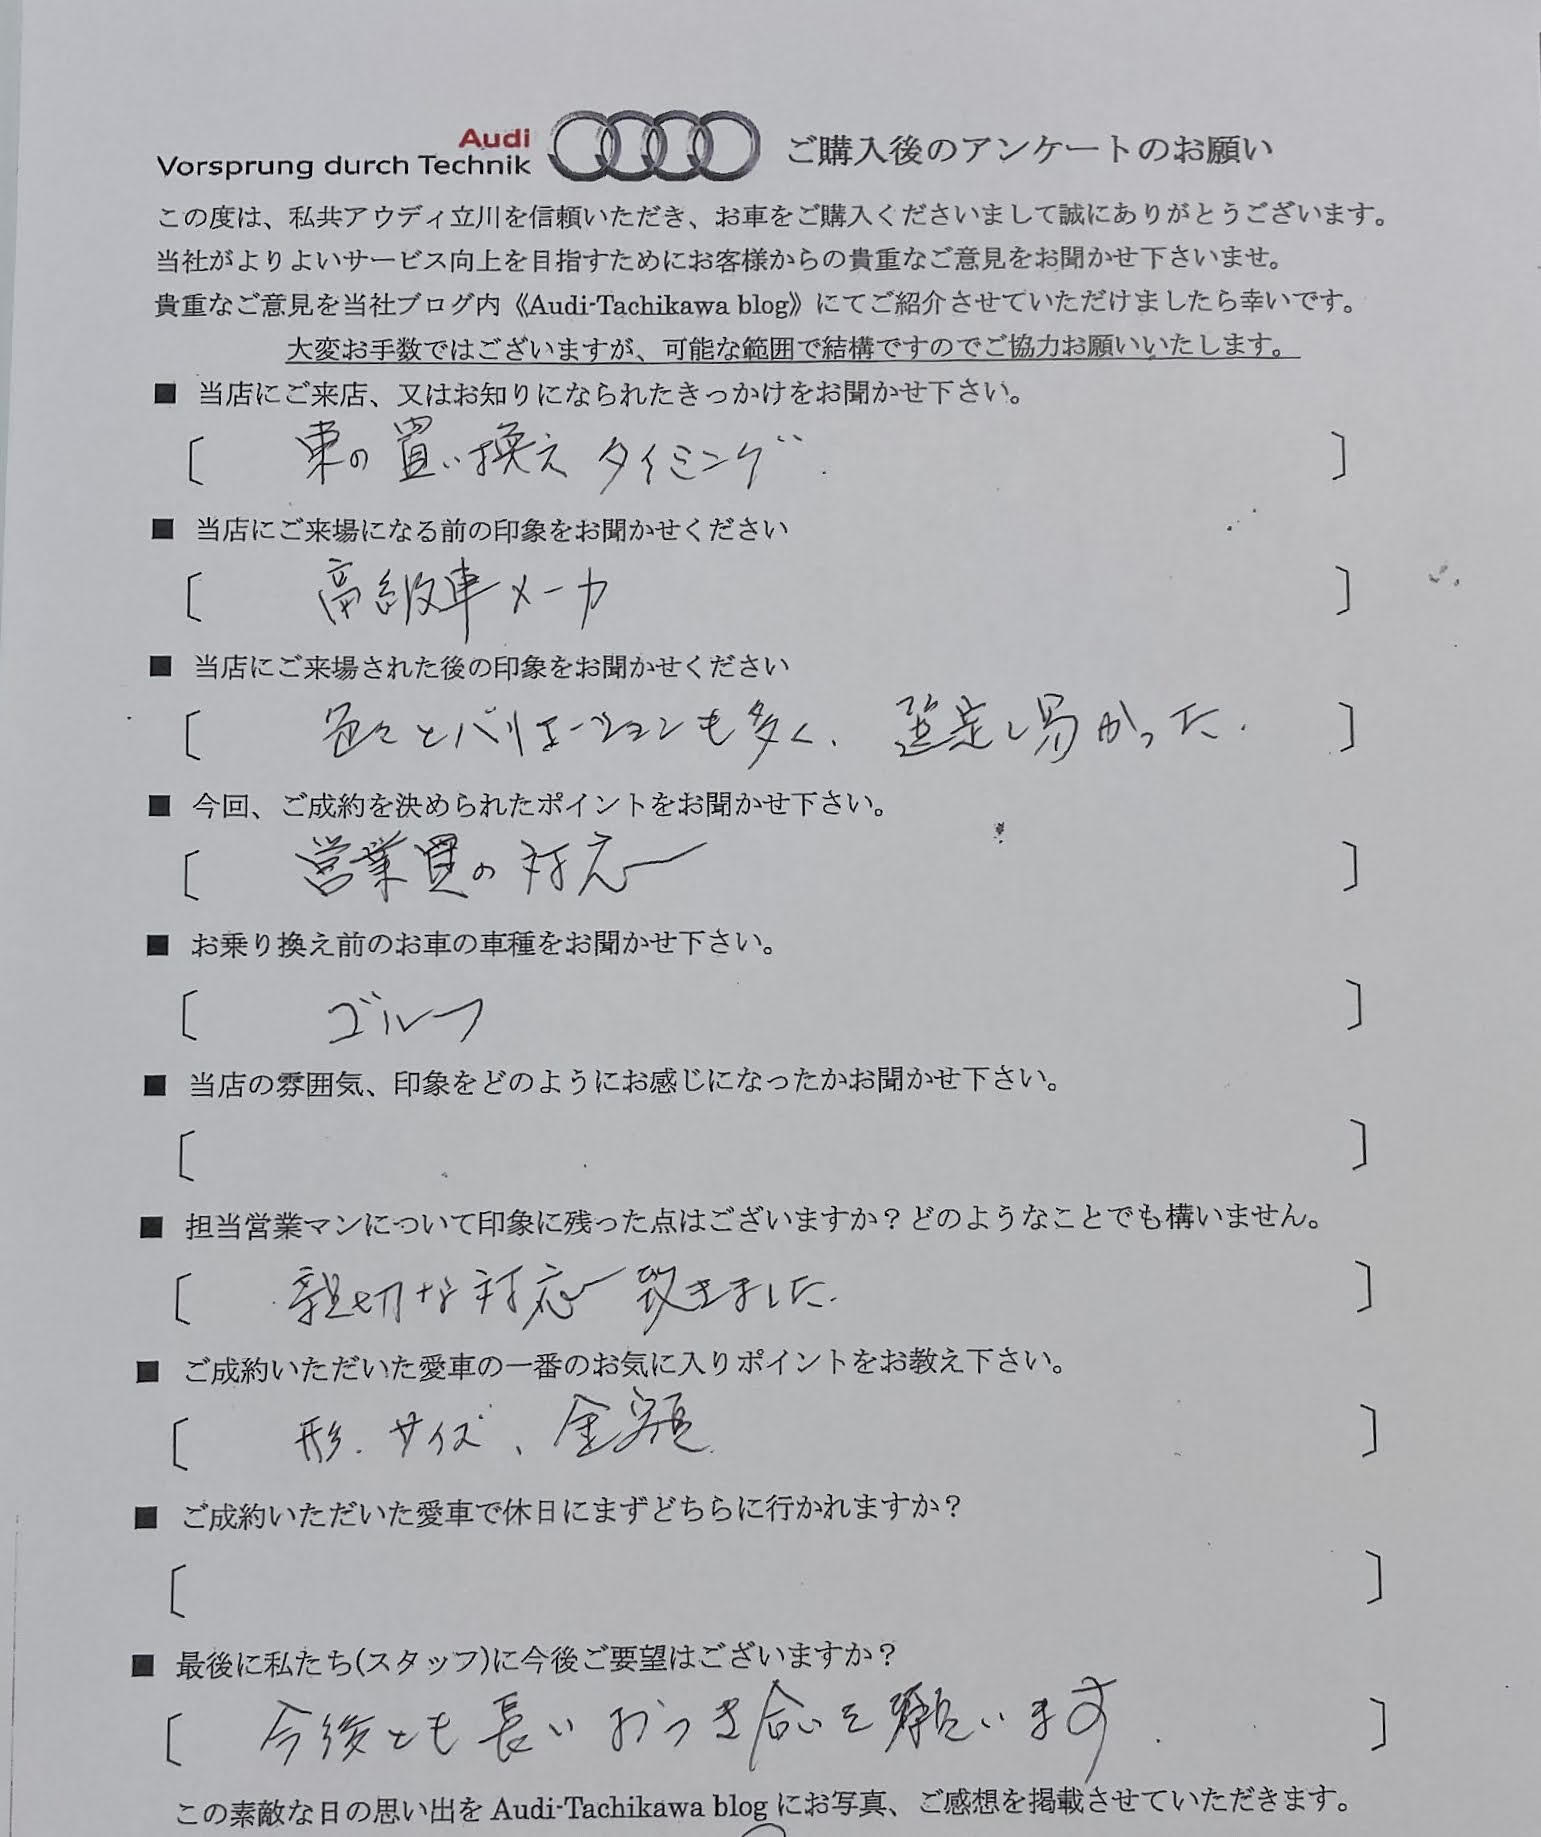 Audi
Vorsprung durch Technik ご購入後のアンケートのお願い
この度は、私共アウディ立川を信頼いただき、お車をご購入くださいまして誠にありがとうございます。
当社がよりよいサービス向上を目指すためにお客様からの貴重なご意見をお聞かせ下さいませ。
貴重なご意見を当社ブログ内《Audi-Tachikawa blog》にてご紹介させていただけましたら幸いです。
大変お手数ではございますが、可能な範囲で結構ですのでご協力お願いいたします。
■ 当店にご来店、又はお知りになられたきっかけをお聞かせ下さい。
[ 車の買い換えタイミング. ]
■ 当店にご来場になる前の印象をお聞かせください
[ 高級車メーカ ]
■ 当店にご来場された後の印象をお聞かせください
[ 色々とバリエーションも多く、選定し易かった. ]
■ 今回、ご成約を決められたポイントをお聞かせ下さい。
[ 営業員の対応 ]
■ お乗り換え前のお車の車種をお聞かせ下さい。
[ ゴルフ ]
■ 当店の雰囲気、印象をどのようにお感じになったかお聞かせ下さい。
[ ]
■ 担当営業マンについて印象に残った点はございますか？どのようなことでも構いません。
[ 親切な対応致きました. ]
■ ご成約いただいた愛車の一番のお気に入りポイントをお教え下さい。
[ 形、サイズ、金額 ]
■ ご成約いただいた愛車で休日にまずどちらに行かれますか？
[ ]
■ 最後に私たち(スタッフ)に今後ご要望はございますか？
[ 今後とも長いおつき合いを願います. ]
この素敵な日の思い出を Audi-Tachikawa blog にお写真、ご感想を掲載させていただきます。